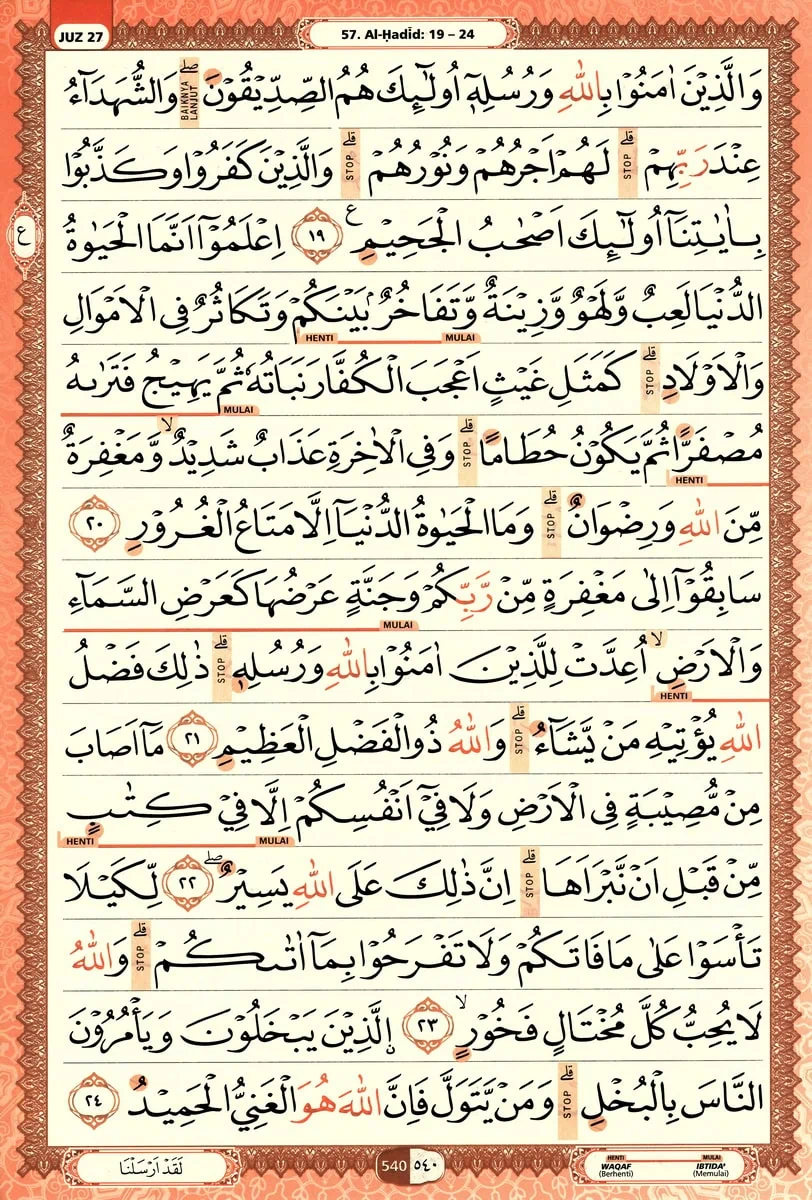 JUZ 27
57. Al-Ḥadīd: 19 – 24
وَالَّذِيْنَ اٰمَنُوْا بِاللّٰهِ وَرُسُلِهٖٓ اُولٰۤىِٕكَ هُمُ الصِّدِّيْقُوْنَ ۖ وَالشُّهَدَاۤءُ
BAIKNYA LANJUT
عِنْدَ رَبِّهِمْ ۗ لَهُمْ اَجْرُهُمْ وَنُوْرُهُمْ ۗ وَالَّذِيْنَ كَفَرُوْا وَكَذَّبُوْا
STOP STOP
بِاٰيٰتِنَآ اُولٰۤىِٕكَ اَصْحٰبُ الْجَحِيْمِ ࣖ ١٩ اِعْلَمُوْٓا اَنَّمَا الْحَيٰوةُ
ع
الدُّنْيَا لَعِبٌ وَّلَهْوٌ وَّزِيْنَةٌ وَّتَفَاخُرٌۢ بَيْنَكُمْ وَتَكَاثُرٌ فِى الْاَمْوَالِ
HENTI MULAI
وَالْاَوْلَادِ ۗ كَمَثَلِ غَيْثٍ اَعْجَبَ الْكُفَّارَ نَبَاتُهٗ ثُمَّ يَهِيْجُ فَتَرٰىهُ
STOP
MULAI
مُصْفَرًّا ثُمَّ يَكُوْنُ حُطَامًا ۗ وَفِى الْاٰخِرَةِ عَذَابٌ شَدِيْدٌ ۙ وَّمَغْفِرَةٌ
STOP
HENTI
مِّنَ اللّٰهِ وَرِضْوَانٌ ۗ وَمَا الْحَيٰوةُ الدُّنْيَآ اِلَّا مَتَاعُ الْغُرُوْرِ ٢٠
STOP
سَابِقُوْٓا اِلٰى مَغْفِرَةٍ مِّنْ رَّبِّكُمْ وَجَنَّةٍ عَرْضُهَا كَعَرْضِ السَّمَاۤءِ
MULAI
وَالْاَرْضِ ۙ اُعِدَّتْ لِلَّذِيْنَ اٰمَنُوْا بِاللّٰهِ وَرُسُلِهٖ ۗ ذٰلِكَ فَضْلُ
STOP
HENTI
اللّٰهِ يُؤْتِيْهِ مَنْ يَّشَاۤءُ ۗ وَاللّٰهُ ذُو الْفَضْلِ الْعَظِيْمِ ٢١ مَآ اَصَابَ
STOP
مِنْ مُّصِيْبَةٍ فِى الْاَرْضِ وَلَا فِيْٓ اَنْفُسِكُمْ اِلَّا فِيْ كِتٰبٍ
MULAI HENTI
مِّنْ قَبْلِ اَنْ نَّبْرَاَهَا ۗ اِنَّ ذٰلِكَ عَلَى اللّٰهِ يَسِيْرٌ ۖ ٢٢ لِّكَيْلَا
STOP
تَأْسَوْا عَلٰى مَا فَاتَكُمْ وَلَا تَفْرَحُوْا بِمَآ اٰتٰىكُمْ ۗ وَاللّٰهُ
STOP
لَا يُحِبُّ كُلَّ مُخْتَالٍ فَخُوْرٍ ۙ ٢٣ ࣙالَّذِيْنَ يَبْخَلُوْنَ وَيَأْمُرُوْنَ
النَّاسَ بِالْبُخْلِ ۗ وَمَنْ يَّتَوَلَّ فَاِنَّ اللّٰهَ هُوَ الْغَنِيُّ الْحَمِيْدُ ٢٤
STOP
لَقَدْ اَرْسَلْنَا
540 ٥٤٠
HENTI MULAI
WAQAF IBTIDA'
(Berhenti) (Memulai)